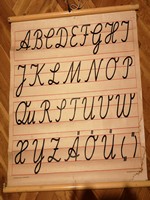 ABCDEFGHI
JKLMNOP
QuRSTUVW
XYZÄÖÜ